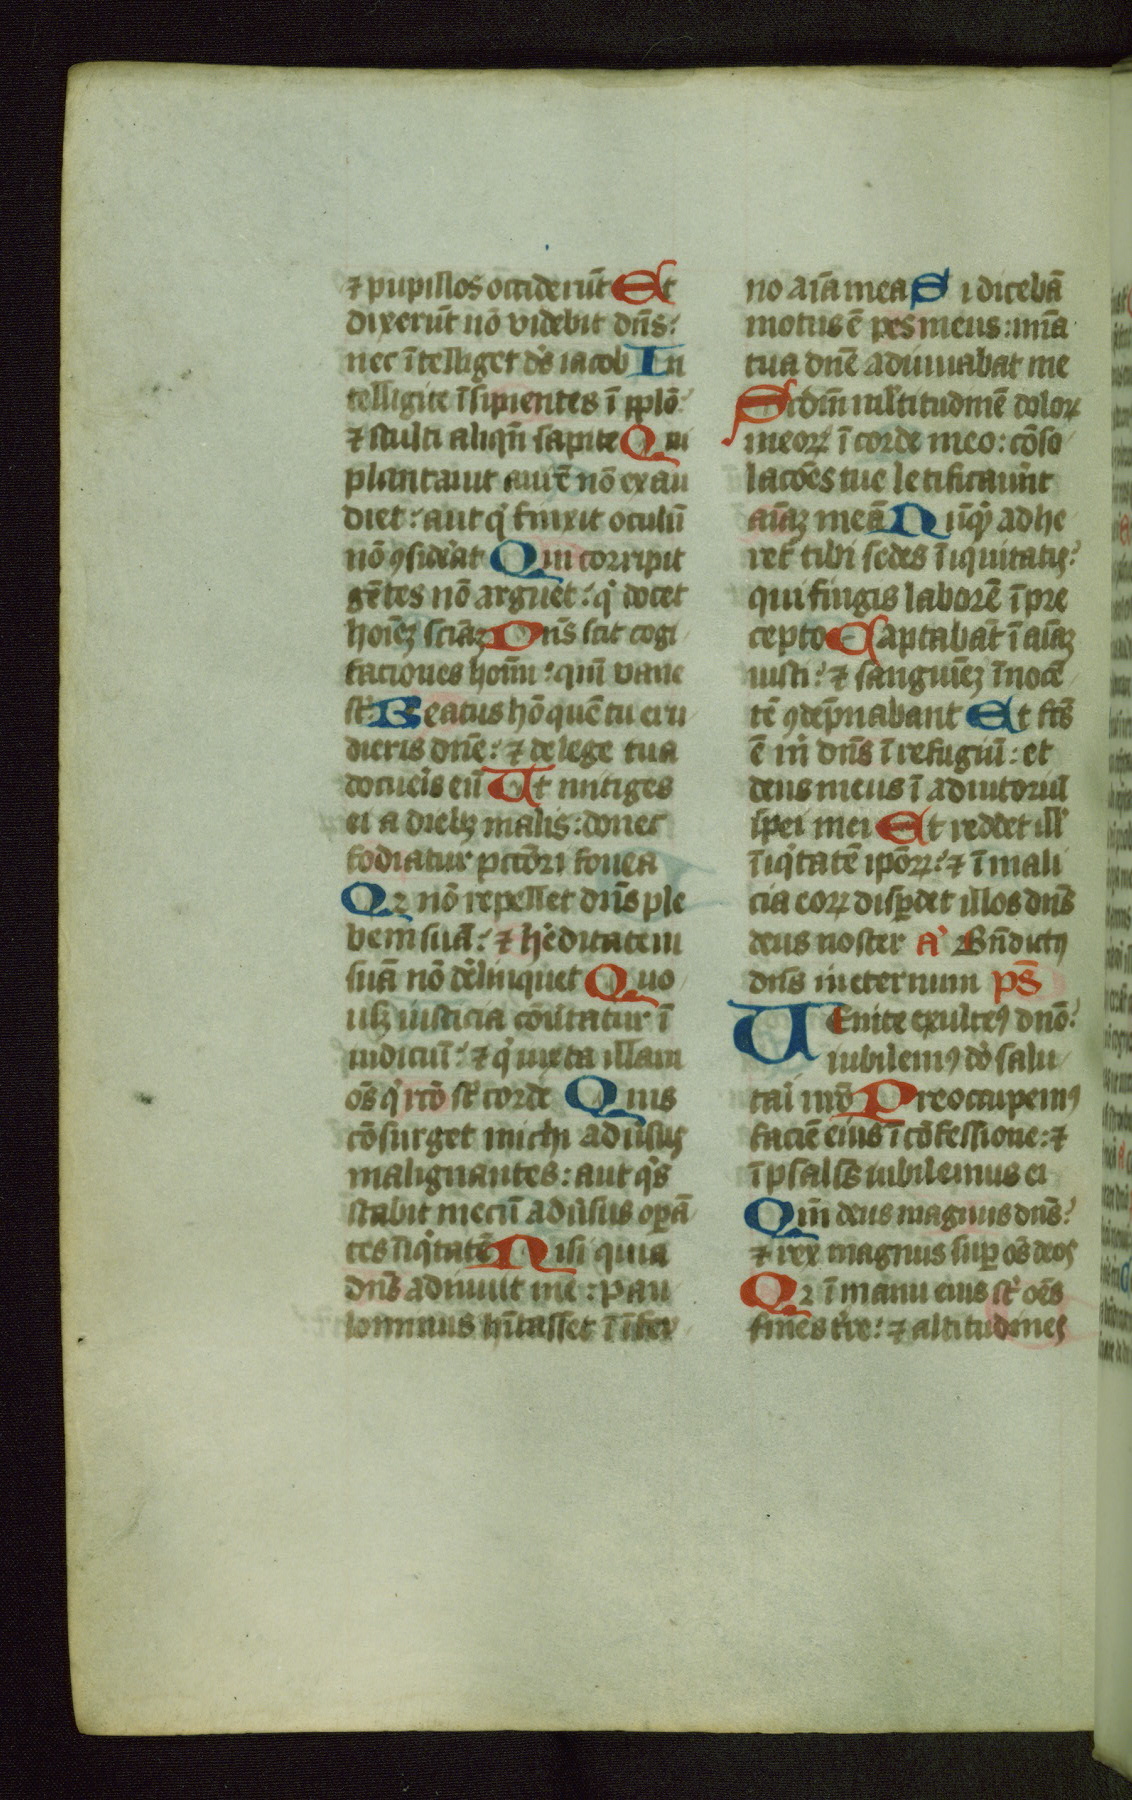 ⁊ pupillos occiderūt Et
dixerūt nō videbit dn̄s:
nec ītelliget ds̄ iacob In
telligite īsipientes ī pplō
⁊ stulti aliqn̄ sapite Qui
plantauit aurē nō exau
diet: aut qͥ finxit oculū
nō ꝯsiderat Qui corripit
gētes nō arguet: qͥ docet
hoīeꝫ sciāꝫ Dn̄s scit cogi
taciones homī: qm̄ vane
st̄ Beatus hō quē tu eru
dieris dn̄e: ⁊ de lege tua
docueis eū Ut mitiges
ei a diebꝫ malis: donec
fodiatur pctōri fouea
Qꝛ nō repellet dn̄s ple
bem suā: ⁊ hͤditatem
suā nō delinquet Quo
usꝫ iusticia cōūtatur ī
iudiciū: ⁊ qͥ iuxta illam
ōs qͥ rcō st̄ corde Quis
cōsurget michi adūsus
malignantes: aut qͥs
stabit mecū adūsus opā
tes īiqͥtatē Nisi quia
dn̄s adiuuit me: pau
lominus hītasset ī īfer
no aīa mea Si dicebā
motus ē pes meus: mīa
tua dn̄e adiuuabat me
Scdm̄ multitudinē doloꝝ
meoꝝ ī corde meo: cōso
lacōes tue letificauer̄t
aīaꝫ meā Nūqͥ adhe
ret tibi sedes īiquitatis:
qui fingis laborē ī pre
cepto Captabāt ī aīaꝫ
iusti: ⁊ sanguinēꝫ īnocē
tē ꝯdēpnabant Et fcs̄
ē m̄ dn̄s ī refugiū: et
deus meus ī adiutoriū
spei mei Et reddet ill̄
īiqͥtatē ipōꝝ: ⁊ ī mali
cia eoꝝ disꝑdet illos dn̄s
deus noster a͛ Bn̄dictꝯ
dn̄s in eternum ps̄
Venite exultemꝯ dnō:
iubilemꝯ dō salu
tai nrō Preoccupemꝯ
faciē eius ī cōfessione: ⁊
ī psalīs iubilemus ei
Qm̄ deus magnus dn̄s:
⁊ rex magnus suꝑ ōs deos
Qꝛ ī manu eius st̄ oēs
fines tre: ⁊ altitudines